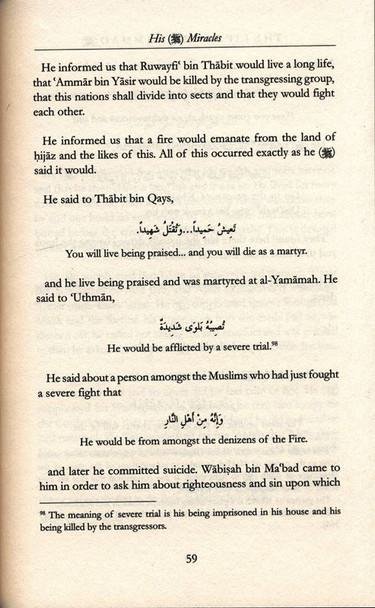 His (ﷺ) Miracles
He informed us that Ruwayfiʿ bin Thābit would live a long life,
that ʿAmmār bin Yāsir would be killed by the transgressing group,
that this nations shall divide into sects and that they would fight
each other.
He informed us that a fire would emanate from the land of
ḥijāz and the likes of this. All of this occurred exactly as he (ﷺ)
said it would.
He said to Thābit bin Qays,
تَعِيشُ حَمِيداً...وَتُقْتَلُ شَهِيداً.
You will live being praised... and you will die as a martyr.
and he live being praised and was martyred at al-Yamāmah. He
said to ʿUthmān,
تُصِيبُهُ بَلْوَى شَدِيدَةٌ
He would be afflicted by a severe trial.⁹⁸
He said about a person amongst the Muslims who had just fought
a severe fight that
وَإِنَّهُ مِنْ أَهْلِ النَّارِ
He would be from amongst the denizens of the Fire.
and later he committed suicide. Wābiṣah bin Maʿbad came to
him in order to ask him about righteousness and sin upon which
⁹⁸ The meaning of severe trial is his being imprisoned in his house and his
being killed by the transgressors.
59